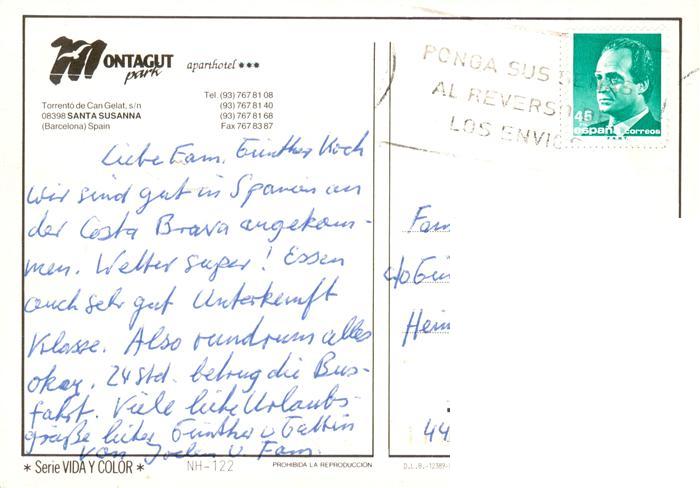 MONTAGUT
park
aparthotel ***
Torrentó de Can Gelat, s/n
08398 SANTA SUSANNA
(Barcelona) Spain
Tel. (93) 767 81 08
(93) 767 81 40
(93) 767 81 68
Fax 767 83 87
PONGA SUS SE
AL REVERSO
LOS ENVIOS
45
PTA
españa correos
Liebe Fam. Günther Koch
wir sind gut in Spanien an
der Costa Brava angekom-
men. Wetter super! Essen
auch sehr gut Unterkunft
Klasse. Also rundrum alles
okay. 24 Std. betrug die Bus-
fahrt. Viele liebe Urlaubs-
grüße lieber Günther u Gattin
von Jochen u. Fam.
Fam
c/o Gün
Hein
44
* Serie VIDA Y COLOR *
NH-122
PROHIBIDA LA REPRODUCCIÓN
D.L.B.-12389-